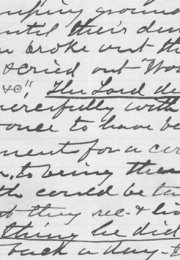 ground
until their du
broke out th
& cried out "Wo
&c" The Lord de
mercifully with
once to have be
ment for a cer
to bring the
could be ta
they rec. & li
thing he did
back a day - t